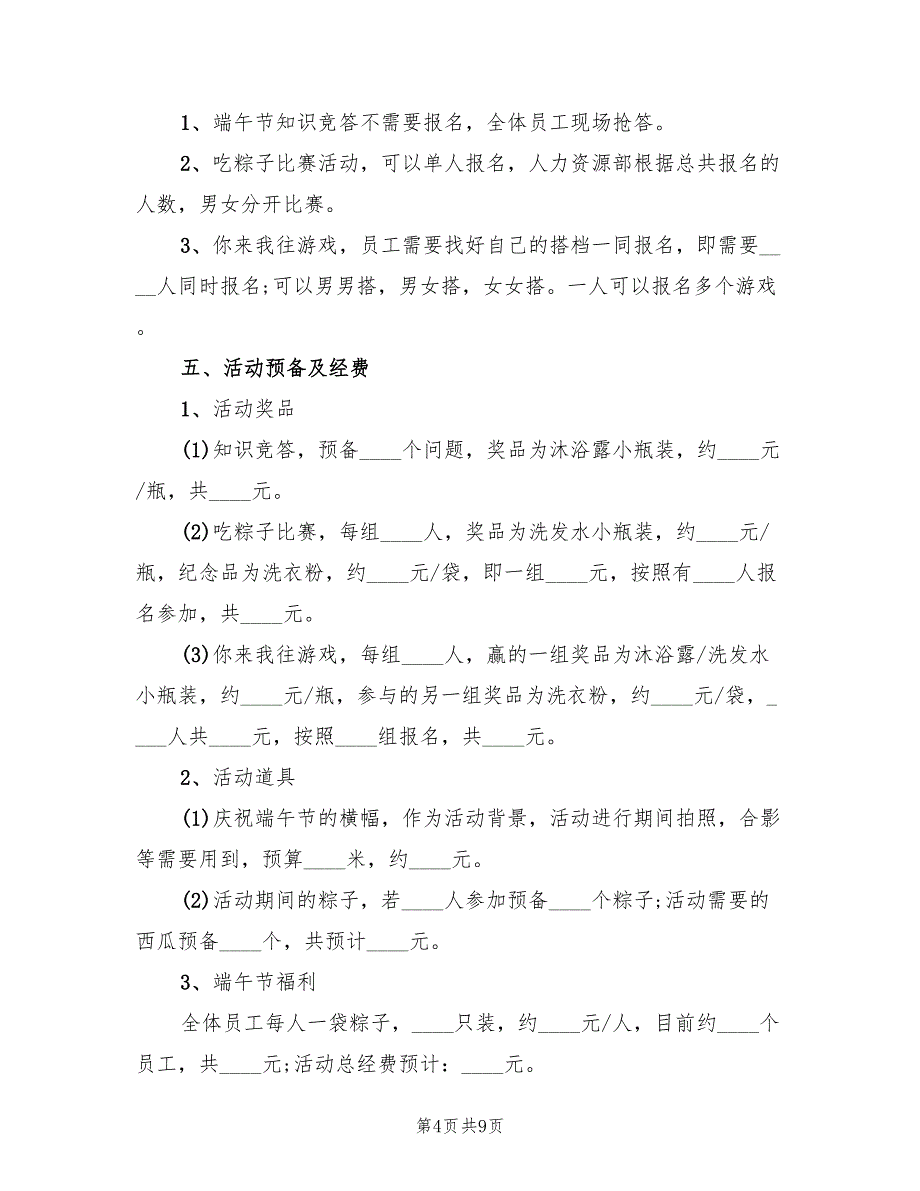 1、端午节知识竞答不需要报名，全体员工现场抢答。
2、吃粽子比赛活动，可以单人报名，人力资源部根据总共报名的
人数，男女分开比赛。
3、你来我往游戏，员工需要找好自己的搭档一同报名，即需要__
__人同时报名;可以男男搭，男女搭，女女搭。一人可以报名多个游戏
。
五、活动预备及经费
1、活动奖品
(1)知识竞答，预备____个问题，奖品为沐浴露小瓶装，约____元
/瓶，共____元。
(2)吃粽子比赛，每组____人，奖品为洗发水小瓶装，约____元/
瓶，纪念品为洗衣粉，约____元/袋，即一组____元，按照有____人报
名参加，共____元。
(3)你来我往游戏，每组____人，赢的一组奖品为沐浴露/洗发水
小瓶装，约____元/瓶，参与的另一组奖品为洗衣粉，约____元/袋，_
___人共____元，按照____组报名，共____元。
2、活动道具
(1)庆祝端午节的横幅，作为活动背景，活动进行期间拍照，合影
等需要用到，预算____米，约____元。
(2)活动期间的粽子，若____人参加预备____个粽子;活动需要的
西瓜预备____个，共预计____元。
3、端午节福利
全体员工每人一袋粽子，____只装，约____元/人，目前约____个
员工，共____元;活动总经费预计：____元。
第4页共9页